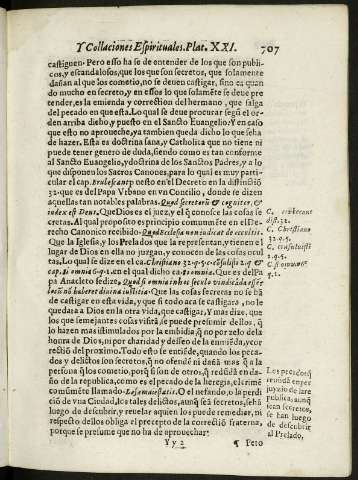 Y Collaciones Espirituales. Plat. XXI. 707
castiguen. Pero esso ha se de entender de los que son publi-
cos, y escandalosos, que los que son secretos, que solamente
dañan al que los cometio, no se deuen castigar, sino es quan
do mucho en secreto, y en essos lo que solamẽte se deue pre
tender, es la emienda y correction del hermano, que salga
del pecado en que esta. Lo qual se deue procurar segũ el or-
den arriba dicho y puesto en el Sancto Euangelio. Y en caso
que esto no aproueche, ya tambien queda dicho lo que se ha
de hazer. Esta es doctrina sana, y Catholica que no tiene ni
puede tener genero de duda, siendo como es tan conforme
al Sancto Euangelio, y doctrina de los Sanctos Padres, y a lo
que disponen los Sacros Canones, para lo qual es muy parti-
cular el cap. puesto en el Decreto en la distinctiõ
32. que es del Papa Vrbano en vn Concilio, donde se dizen
aquellas tan notables palabras. Quod secretorũ & cognitor, &
iudex est Deus. Que Dios es el juez, y el q̃ conoce las cosas se-
cretas. Al qual proposito es principio comunmẽte en el De-
recho Canonico recibido. Quod Ecclesia non iudicat de occultis.
Que la Iglesia, y los Prelados que la representan, y tienen el
lugar de Dios en ella no juzgan, y conocen de las cosas ocul
tas, Lo qual se dize en el c. Christiano 32. q. 5. c. 2. q.
cap. si omnia 6. q. 1. en el qual dicho ca. si omnia. Que es del Pa
pa Anacleto se dize, Quod si omnia in hoc seculo vindicata essẽt
locũ nõ haberet diuina iusticia. Que las cosas secretas no se hã
de castigar en esta vida, y que si todo aca se castigara, no le
quedara a Dios en la otra vida, que castigar, Y mas dize, que
los que semejantes cosas visitã, se puede presumir dellos, q̃
lo hazen mas istimulados por la embidia, q̃ no por zelo de la
honra de Dios, ni por charidad y desseo de la emiẽda, y cor
rectiõ del proximo. Todo esto se entiẽde, quando los peca-
dos y delictos son secretos, q̃ no ofendẽ ni dañã mas q̃ a la
persona q̃ los cometio, porq̃ si son de otros, q̃ redũdã en da-
ño de la republica, como es el pecado de la heregia, el crimẽ
comũmẽte llamado. Lesæ maiestatis. O el nefando, o la perdi
ciõ de vna Ciudad, los tales delictos, aunq̃ seã secretos, se hã
luego de descubrir, y reuelar aquien los puede remediar, ni
respecto dellos obliga el precepto de la correctiõ fraterna,
porque se presume que no ha de aprouechar.
Y y 2 ¶ Pero
dist. 32.
C. Christiano
32. q. 5.
2. q. 5.
C. si omnia 6.
q. 1.
Los pecados q̃
redũdã en per
juyzio de la re
publica, aunq̃
sean secretos,
se han luego
de descubrir
al Prelado.